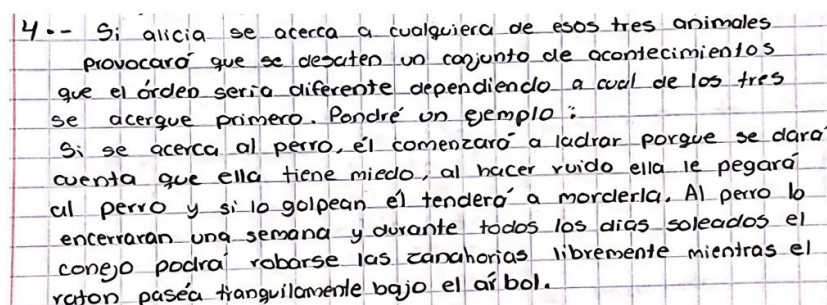 4.- Si alicia se acerca a cualquiera de esos tres animales
provocará que se desaten un conjunto de acontecimientos
que el órden seria diferente dependiendo a cual de los tres
se acerque primero. Pondré un ejemplo:
Si se acerca al perro, él comenzará a ladrar porque se dará
cuenta que ella tiene miedo, al hacer ruido ella le pegará
al perro y si lo golpean él tenderá a morderla. Al perro lo
encerraran una semana y durante todos los dias soleados el
conejo podrá robarse las zanahorias libremente mientras el
raton paséa tranquilamente bajo el árbol.